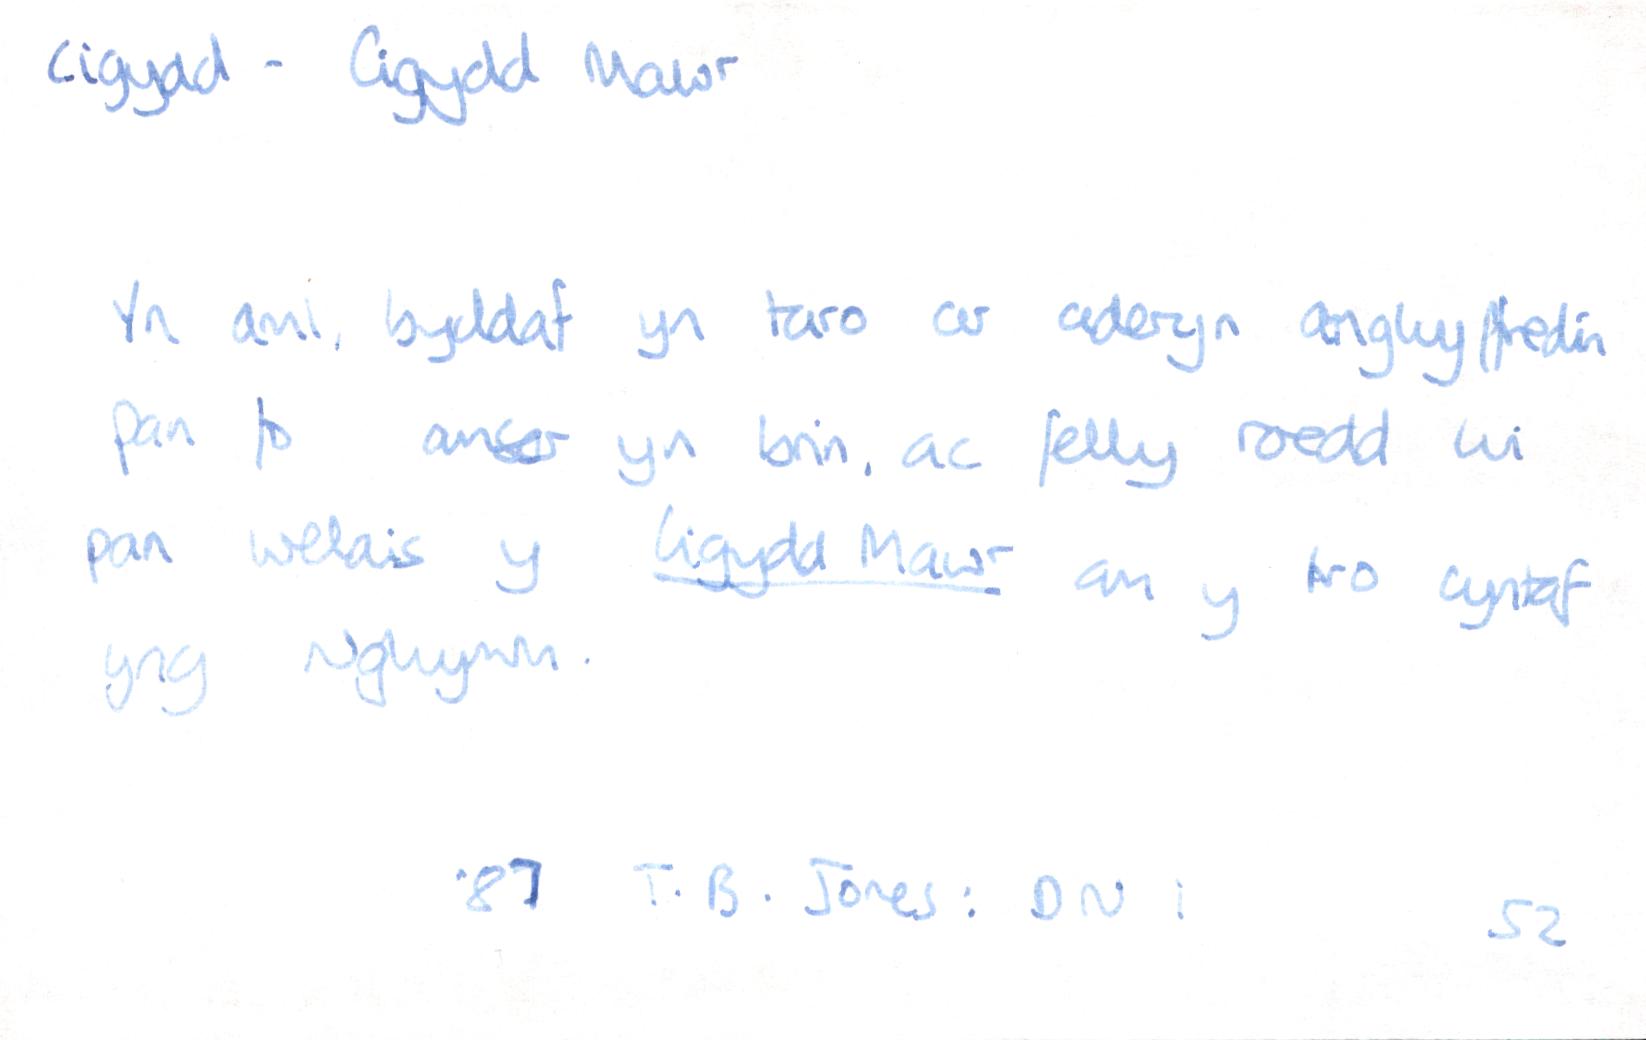 Cigydd - Cigydd Mawr
Yn aml, byddaf yn taro ar aderyn anghyffredin
pan fo amser yn brin, ac felly roedd hi
pan welais y Cigydd Mawr am y tro cyntaf
yng Nghymru.
'87 T. B. Jones: DN 1 52